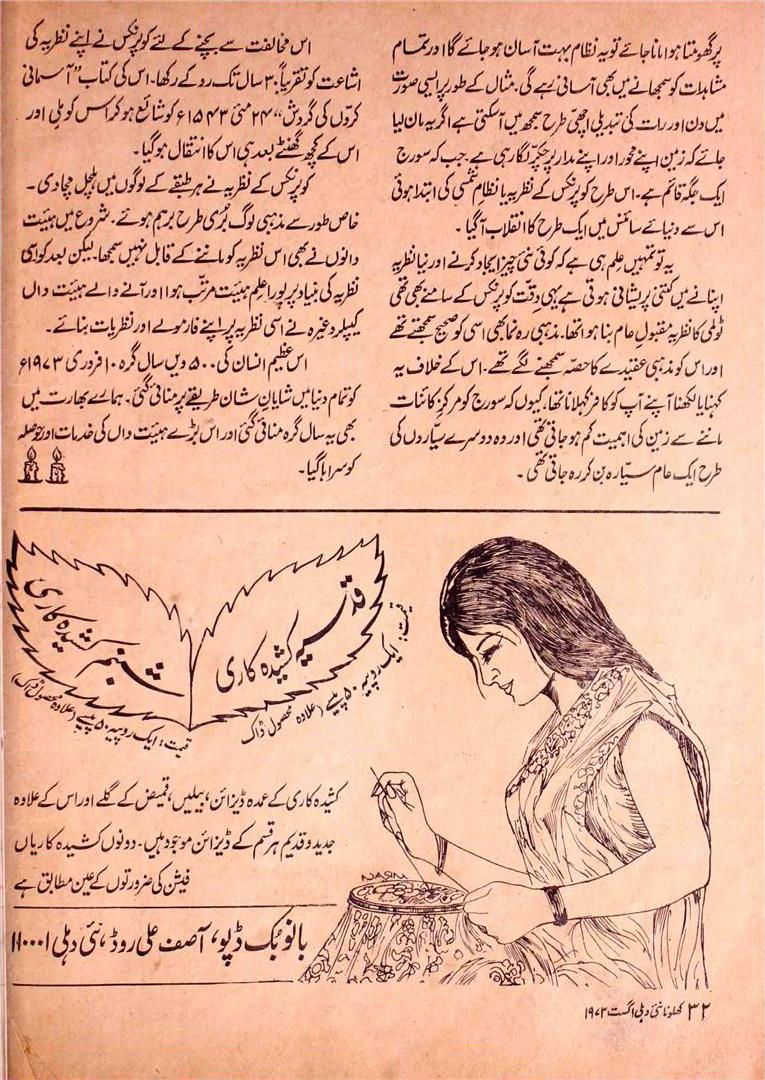 پر گھومتا ہوا مانا جائے تو یہ نظام بہت آسان ہو جائے گا اور تمام
مشاہدات کو سمجھانے میں بھی آسانی رہے گی۔ مثال کے طور پر ایسی صورت
میں دن اور رات کی تبدیلی اچھی طرح سمجھ میں آ سکتی ہے اگر یہ مان لیا
جائے کہ زمین اپنے محور اور اپنے مدار پر چکّر لگا رہی ہے۔ جب کہ سورج
ایک جگہ قائم ہے۔ اس طرح کو پرنکس کے نظریہ یا نظامِ شمسی کی ابتدا ہوئی
اس سے دنیائے سائنس میں ایک طرح کا انقلاب آ گیا۔
یہ تو تمہیں علم ہی ہے کہ کوئی نئی چیز ایجاد کرنے اور نیا نظریہ
اپنانے میں کتنی پریشانی ہوتی ہے یہی دِقّت کو پرنکس کے سامنے بھی تھی
ٹولمی کا نظریہ مقبولِ عام بنا ہوا تھا۔ مذہبی رہ نما بھی اسی کو صحیح سمجھتے تھے
اور اس کو مذہبی عقیدے کا حصّہ سمجھنے لگے تھے۔ اس کے خلاف یہ
کہنا یا لکھنا اپنے آپ کو کافر کہلانا تھا، کیوں کہ سورج کو مرکزِ کائنات
ماننے سے زمین کی اہمیت کم ہو جاتی تھی اور وہ دوسرے سیّاروں کی
طرح ایک عام سیّارہ بن کر رہ جاتی تھی۔
اس مخالفت سے بچنے کے لئے کو پرنکس نے اپنے نظریہ کی
اشاعت کو تقریباً ۳۰ سال تک روکے رکھا۔ اس کی کتاب "آسمانی
کرّوں کی گردش" ۲۴ مئی ۱۵۴۳ء کو شائع ہو کر اس کو ملی اور
اس کے کچھ گھنٹے بعد ہی اس کا انتقال ہو گیا۔
کو پرنکس کے نظریہ نے ہر طبقے کے لوگوں میں ہلچل مچا دی۔
خاص طور سے مذہبی لوگ بُری طرح برہم ہوئے۔ شروع میں ہیئیت
دانوں نے بھی اس نظریہ کو ماننے کے قابل نہیں سمجھا۔ لیکن بعد کو اسی
نظریہ کی بنیاد پر پورا علمِ ہیئیت مرتّب ہوا اور آنے والے ہیئیت داں
کیپلر وغیرہ نے اسی نظریہ پر اپنے فارمولے اور نظریات بنائے۔
اس عظیم انسان کی ۵۰۰ ویں سال گرہ ۱۰ فروری ۱۹۷۳ء
کو تمام دنیا میں شایانِ شان طریقے پر منائی گئی۔ ہمارے بھارت میں
بھی یہ سال گرہ منائی گئی اور اس بڑے ہیئیت داں کی خدمات اور حوصلہ
کو سراہا گیا۔
قدسیہ کشیدہ کاری
قیمت: ایک روپیہ ۵۰ پیسے (علاوہ محصول ڈاک
شبنم کشیدہ کاری
قیمت: ایک روپیہ ۵۰ پیسے (علاوہ محصول ڈاک)
کشیدہ کاری کے عمدہ ڈیزائن، بیلیں، قمیض کے گلے اور اس کے علاوہ
جدید و قدیم ہر قسم کے ڈیزائن موجود ہیں۔ دونوں کشیدہ کاریاں
فیشن کی ضرورتوں کے عین مطابق ہے
بانو بُک ڈپو، آصف علی روڈ، نئی دہلی ۱۱۰۰۰۱
۳۲ کھلونا نئی دہلی اگست ۱۹۷۳